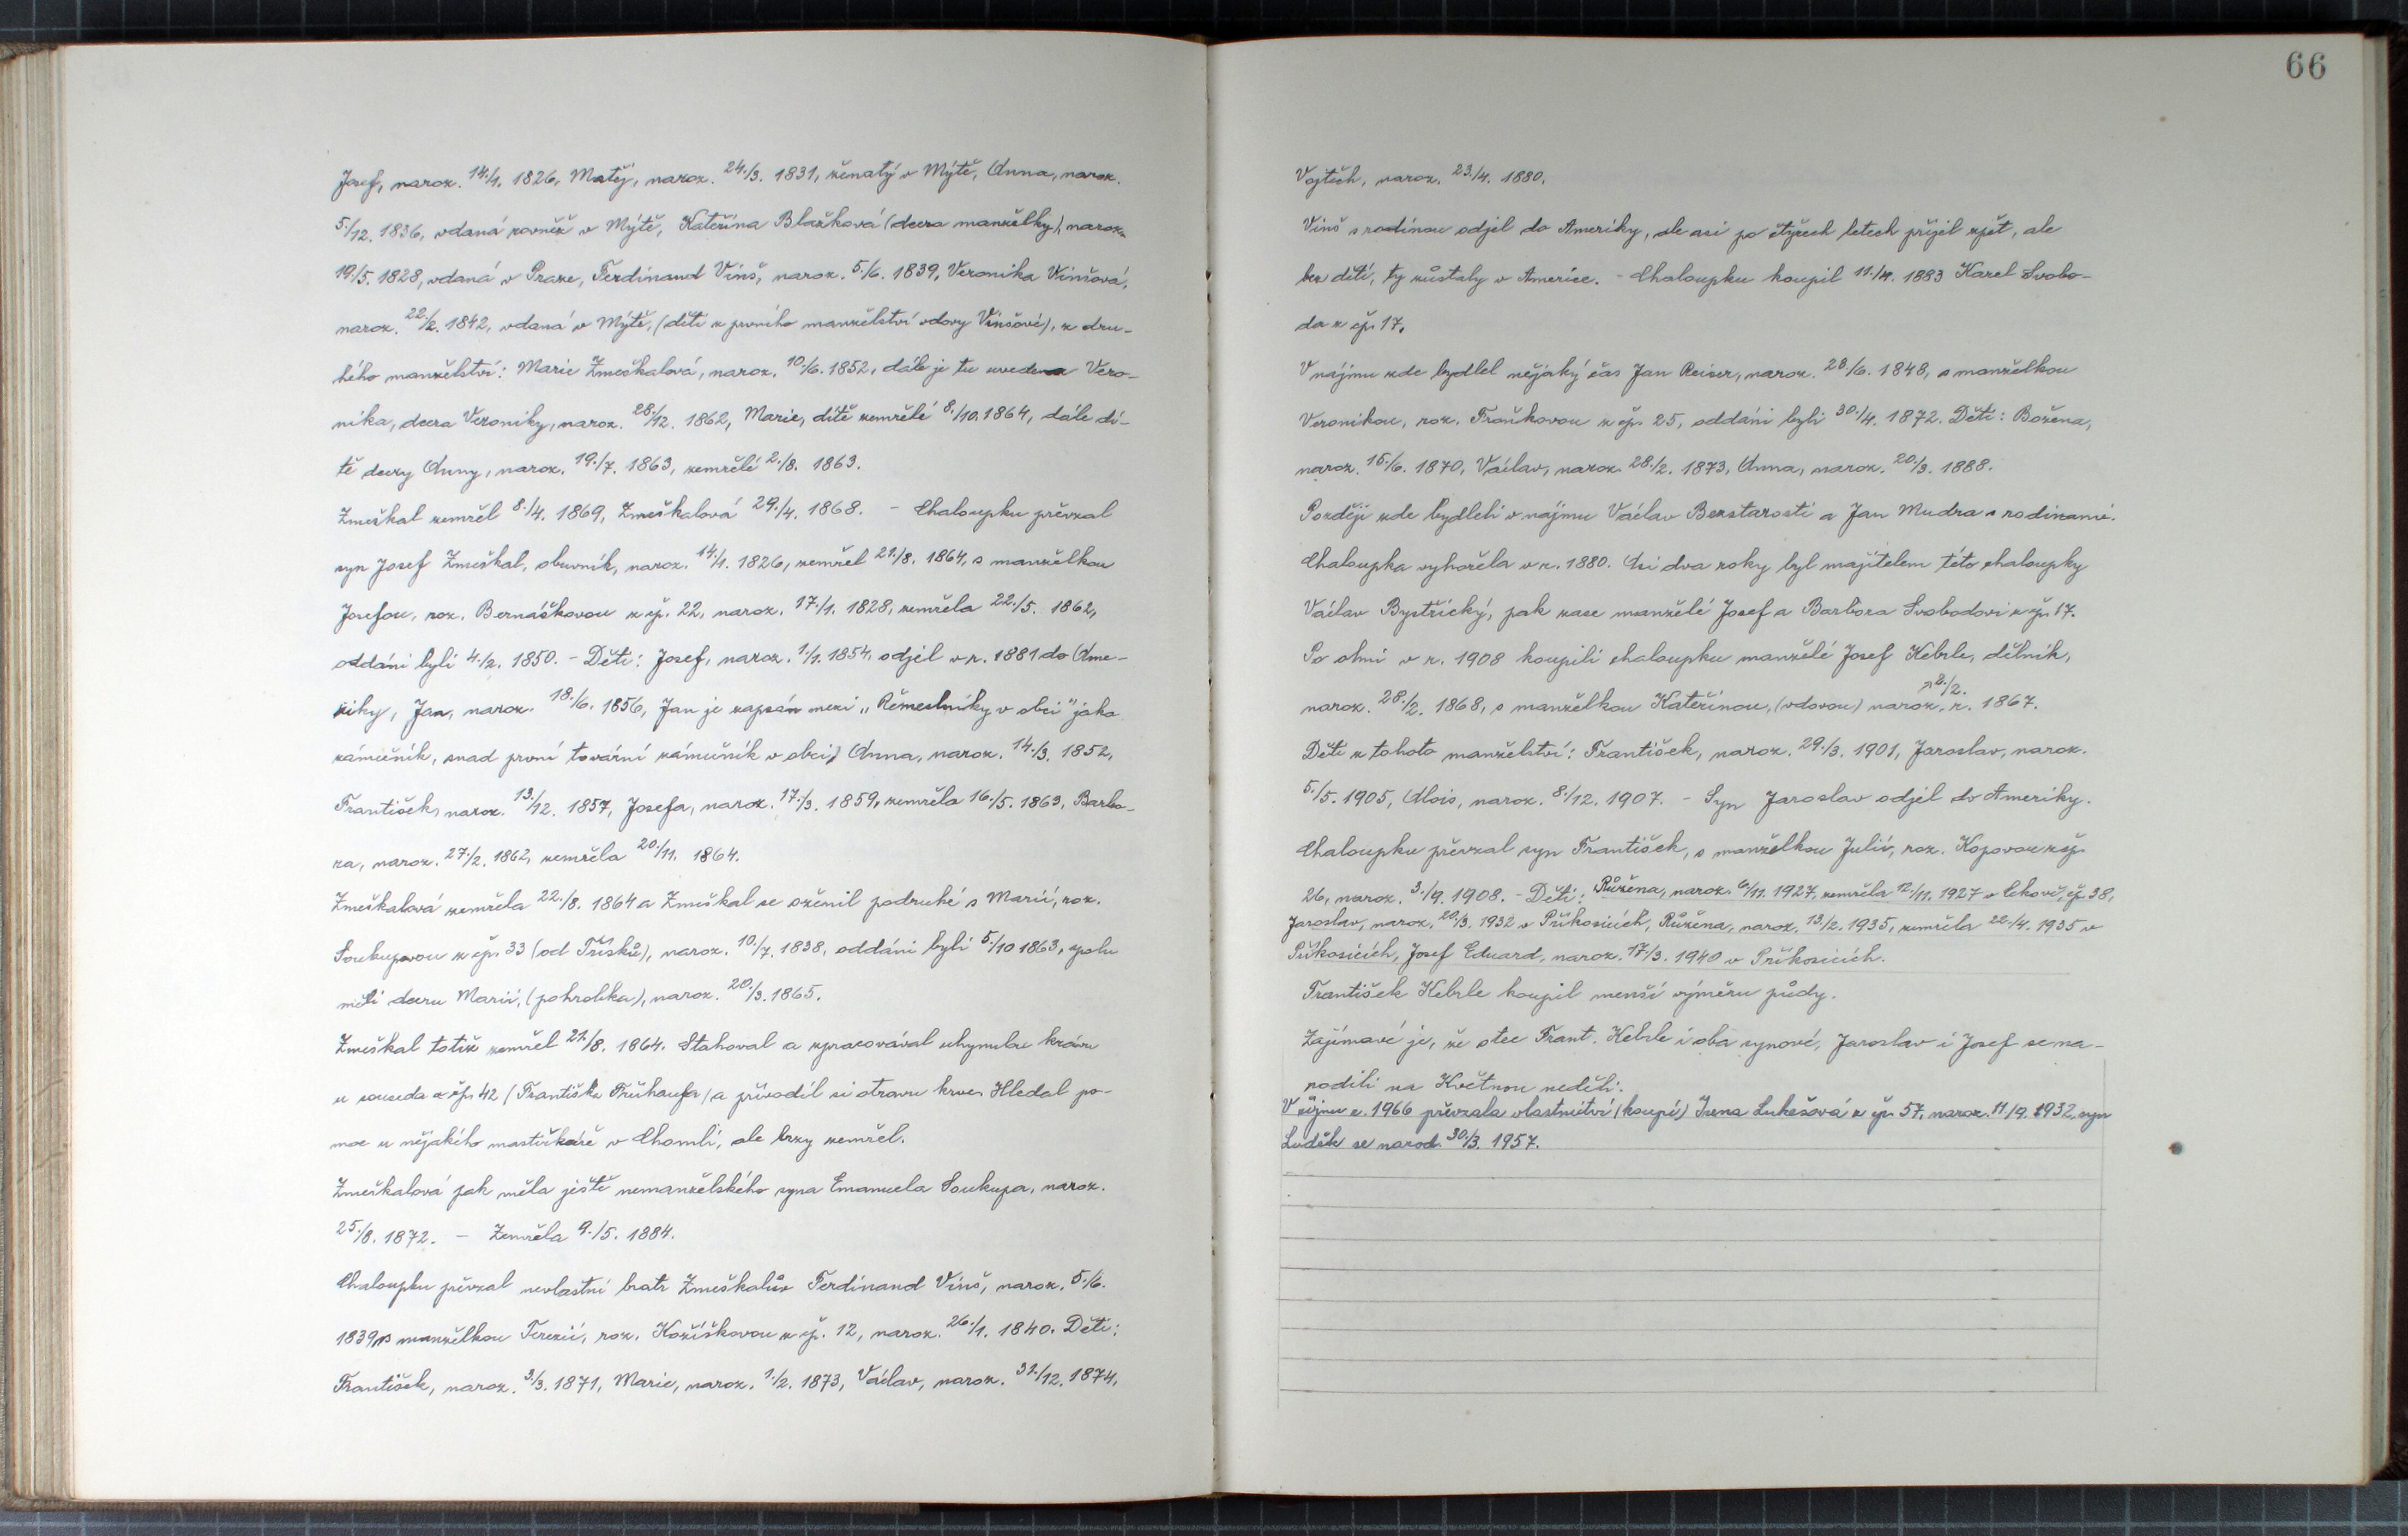 Josef, naroz. 14./1. 1826, Matěj, naroz. 24./3. 1831, ženatý v Mýtě, Anna, naroz.
5./12. 1836, vdaná rovněž v Mýtě, Kateřina Blažková (dcera manželky), naroz.
19./5. 1828, vdaná v Praze, Ferdinand Vinš, naroz. 5./6. 1839, Veronika Vinšová,
naroz. 22./2. 1842, vdaná v Mýtě, (děti z prvního manželství vdovy Vinšové), z dru-
hého manželství: Marie Zmeškalová, naroz. 10./6. 1852, dále je tu uvedena Vero-
nika, dcera Veroniky, naroz. 28./12. 1862, Marie, dítě zemřelé 8./10. 1864, dále dí-
tě dcery Anny, naroz. 19./7. 1863, zemřelé 2./8. 1863.
Zmeškal zemřel 8./4. 1869, Zmeškalová 29./4. 1868. - Chaloupku převzal
syn Josef Zmeškal, obuvník, naroz. 14./1. 1826, zemřel 21./8. 1864, s manželkou
Josefou, roz. Bernáškovou z čp. 22, naroz. 17./1. 1828, zemřela 22./5. 1862,
oddáni byli 4./2. 1850. - Děti: Josef, naroz. 1./1. 1854, odjel v r. 1881 do Ame-
riky, Jan, naroz. 18./6. 1856, Jan je zapsán mezi „Řemeslníky v obci" jako
zámečník, snad první tovární zámečník v obci) Anna, naroz. 14./3. 1852,
František, naroz. 13./12. 1857, Josefa, naroz. 17./3. 1859, zemřela 16./5. 1863, Barbo-
ra, naroz. 27./2. 1862, zemřela 20./11. 1864.
Zmeškalová zemřela 22./8. 1864 a Zmeškal se oženil podruhé s Marií, roz.
Soukupovou z čp. 33 (od Tříšků), naroz. 10./7. 1838, oddáni byli 5./10 1863, spolu
měli dceru Marii, (pohrobka), naroz. 20./3. 1865.
Zmeškal totiž zemřel 21./8. 1864. Stahoval a zpracovával uhynulou krávu
u souseda z čp. 42 (Františka Frühaufa) a přivodil si otravu krve. Hledal po-
moc u nějakého mastičkáře v Chomli, ale brzy zemřel.
Zmeškalová pak měla ještě nemanželského syna Emanuela Soukupa, naroz.
25./8. 1872. - Zemřela 9./5. 1884.
Chaloupku převzal nevlastní bratr Zmeškalův Ferdinand Vinš, naroz. 5./6.
1839, s manželkou Terezií, roz. Kožíškovou z čp. 12, naroz. 26./1. 1840. Děti:
František, naroz. 3./3. 1871, Marie, naroz. 1./2. 1873, Václav, naroz. 31./12. 1874,
66
Vojtěch, naroz. 23./4. 1880.
Vinš s rodinou odjel do Ameriky, ale asi po čtyřech letech přijel zpět, ale
bez dětí, ty zůstaly v Americe. - Chaloupku koupil 11./4. 1883 Karel Svobo-
da z čp. 17.
V nájmu zde bydlel nějaký čas Jan Reiser, naroz. 28./6. 1848, s manželkou
Veronikou, roz. Froňkovou z čp. 25, oddáni byli 30./4. 1872. Děti: Božena,
naroz. 15./6. 1870, Václav, naroz. 28./2. 1873, Anna, naroz. 20./3. 1888.
Později zde bydleli v nájmu Václav Bezstarosti a Jan Mudra s rodinami.
Chaloupka vyhořela v r. 1880. Asi dva roky byl majitelem této chaloupky
Václav Bystřický, pak zase manželé Josef a Barbora Svobodovi z čp. 17.
Po ohni v r. 1908 koupili chaloupku manželé Josef Kebrle, dělník,
naroz. 28./2. 1868, s manželkou Kateřinou, (vdovou) naroz. 8./2. r. 1867.
Děti z tohoto manželství: František, naroz. 29./3. 1901, Jaroslav, naroz.
5./5. 1905, Alois, naroz. 8./12. 1907. - Syn Jaroslav odjel do Ameriky.
Chaloupku převzal syn František, s manželkou Julií, roz. Kopovou z čp.
26, naroz. 3./9. 1908. - Děti: Růžena, naroz. 6./11. 1927, zemřela 12./11. 1927 v čp. 38,
Jaroslav, naroz. 20./3. 1932 v Příkosicích, Růžena, naroz. 13./2. 1935, zemřela 22./4. 1935 v
Příkosicích, Josef Eduard, naroz. 17./3. 1940 v Příkosicích.
František Kebrle koupil menší výměru půdy.
Zajímavé je, že otec Frant. Kebrle i oba synové, Jaroslav i Josef se na-
rodili na Květnou neděli.
V říjnu r. 1966 převzala vlastnictví (koupí) Irena Lukešová z čp. 57, naroz. 11/9. 1932, syn
Luděk se narod. 30./3. 1957.